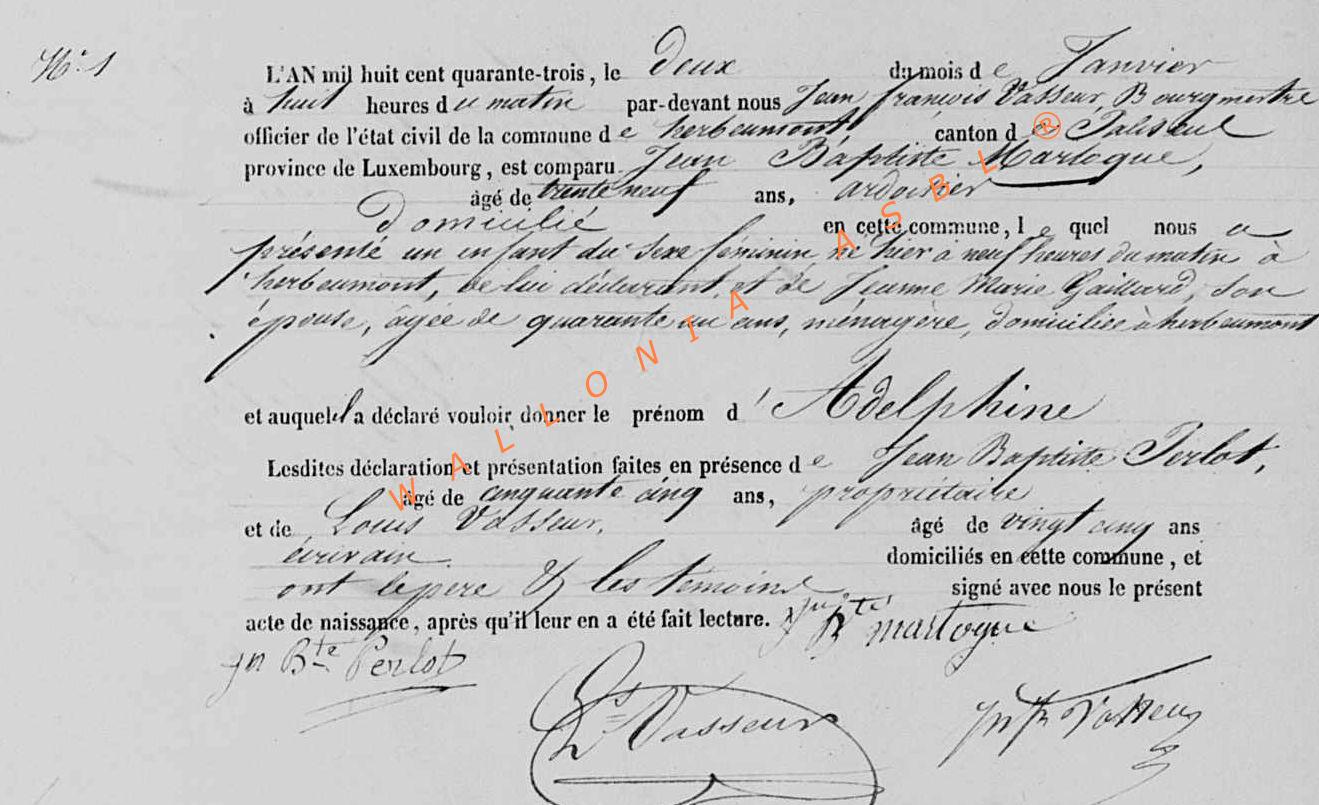 N° 1
L'AN mil huit cent quarante-trois, le deux du mois de Janvier
à huit heures du matin par-devant nous Jean françois Vasseur, Bourgmestre
officier de l'état civil de la commune de herbeumont, canton de Paliseul
province de Luxembourg, est comparu Jean Baptiste Martogue,
âgé de trente neuf ans, ardoisier
domicilié en cette commune, lequel nous a
présenté un enfant du sexe féminin né hier à neuf heures du matin à
herbeumont, de lui déclarant, et de Jeanne Marie Gaillard, son
épouse, âgée de quarante un ans, ménagère, domiciliée à herbeumont
et auquel il a déclaré vouloir donner le prénom d'Adelphine
Lesdites déclaration et présentation faites en présence de Jean Baptiste Perlot,
âgé de cinquante cinq ans, propriétaire
et de Louis Vasseur, âgé de vingt cinq ans
écrivain domiciliés en cette commune, et
ont le pere & les temoins signé avec nous le présent
acte de naissance, après qu'il leur en a été fait lecture. Jn Bte martogue
Jn Bte Perlot
Ls Vasseur
Jn fr Vasseur
WALLONIA ASBL ®